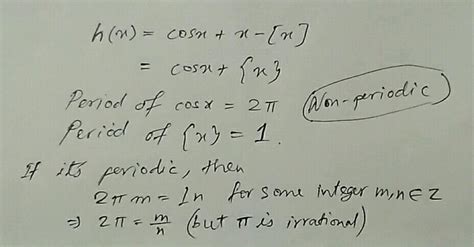 h(x) = cosx + x - [x]
= cosx + {x}
Period of cosx = 2π (Non-periodic)
Period of {x} = 1.
If its periodic, then
2πm = 1n for some integer m,n ∈ Z
⇒ 2π = m/n (but π is irrational)